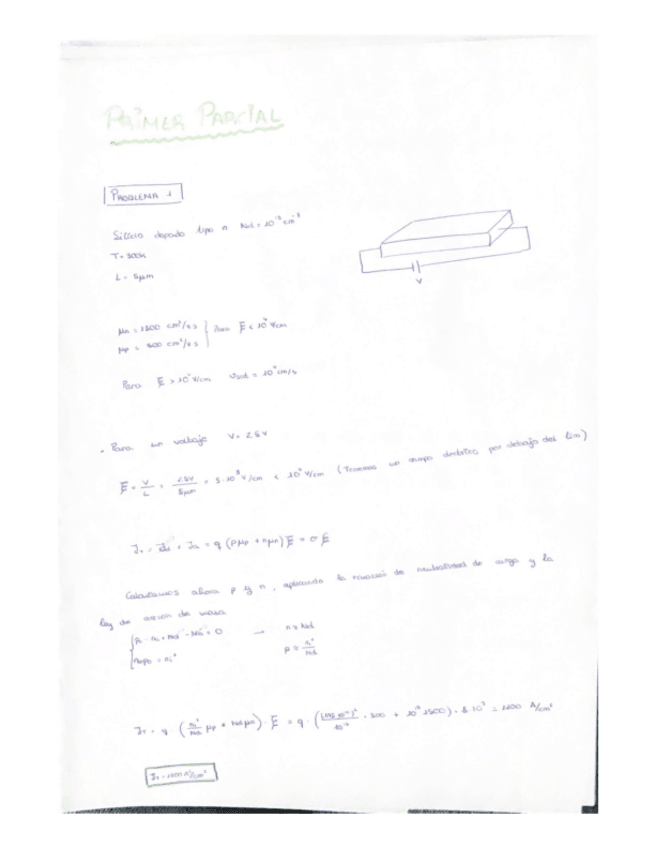 PRIMER PARCIAL
PROBLEMA 1
Silicio dopado tipo n Nd = 10¹⁵ cm⁻³
T = 300K
L = 5μm
V
μn = 1500 cm²/v s
μp = 500 cm²/v s } Para E < 10⁴ V/cm
Para E > 10⁴ V/cm vsat = 10⁷ cm/s
· Para un voltaje V = 2.5V
E = V/L = 2.5V/5μm = 5·10³ V/cm < 10⁴ V/cm (Tenemos un campo eléctrico por debajo del lim)
= q (pμp + nμn) E = σ E
Calculamos ahora p y n, aplicando la ecuación de neutralidad de carga y la
ley de acción de masa
= 0 → n ≈ Nd
nopo = ni² p ≈ ni²/Nd
JT = q · (ni²/Nd μp + Nd μn) · E = q ·